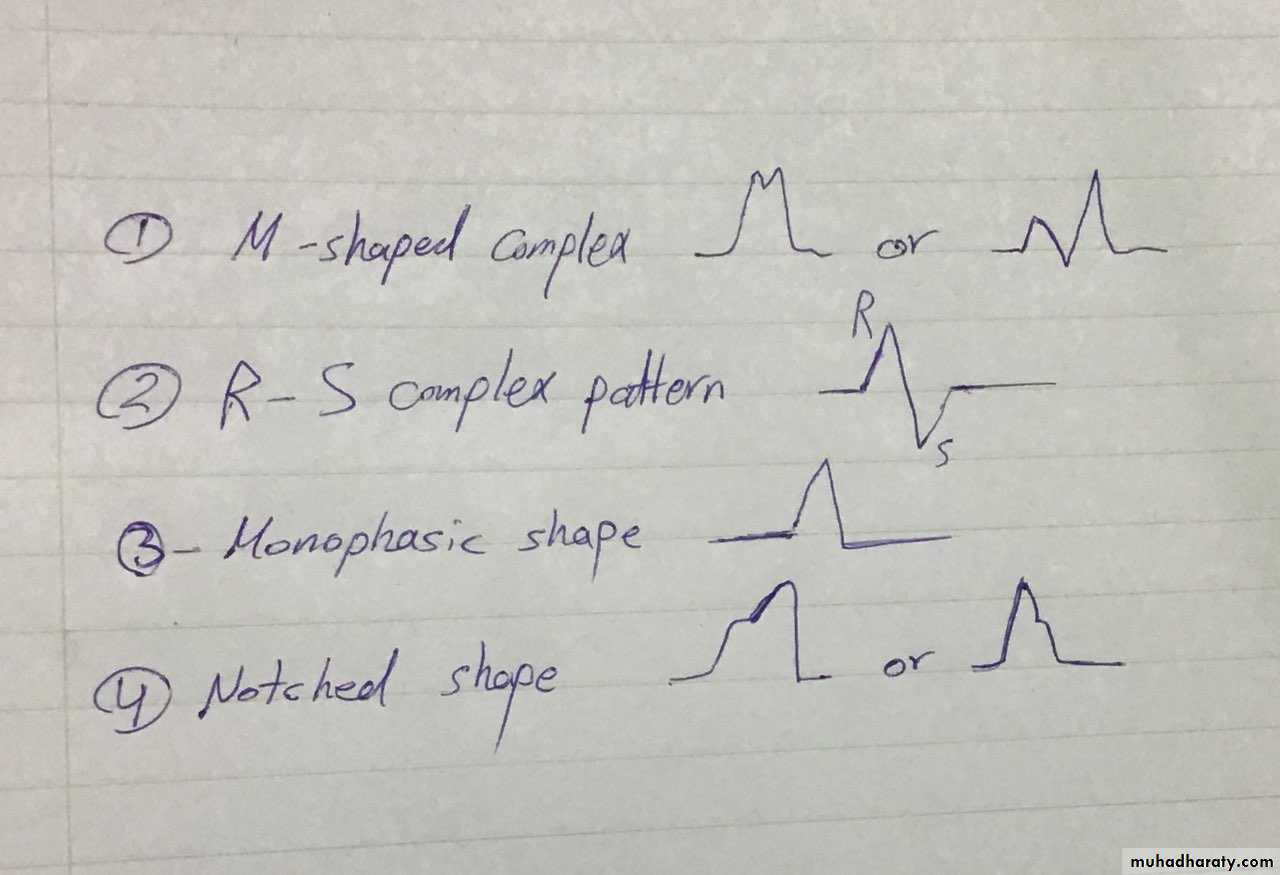 ① M-shaped complex or
R
② R-S complex pattern
S
③- Monophasic shape
④ Notched shape or
muhadharaty.com